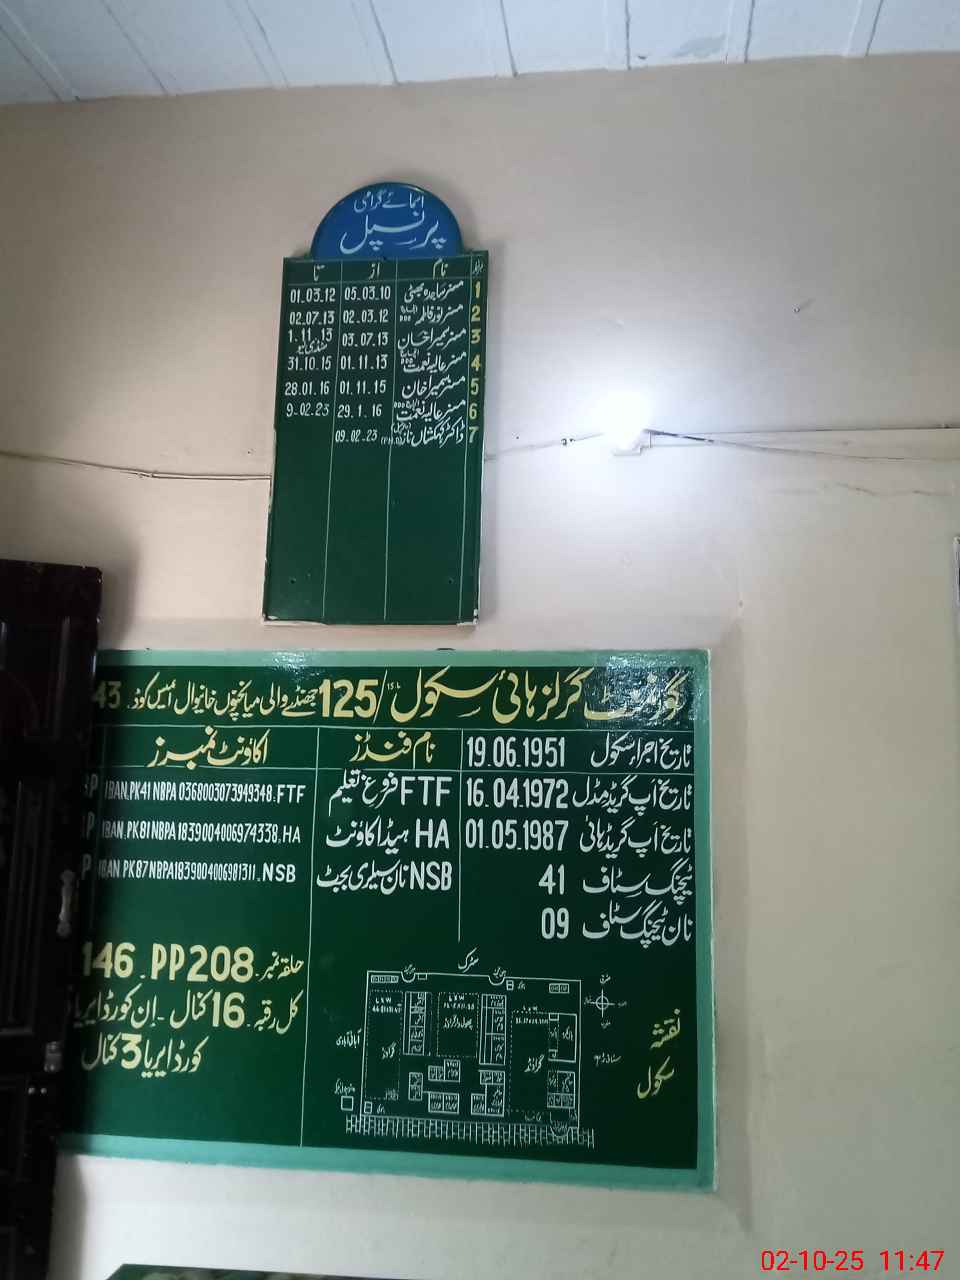 اسمائے گرامی
پرنسپل
نمبر شمار نام از تا
1 مسز ساجدہ بھٹی 05.03.10 01.03.12
2 مسز نور فاطمہ 02.03.12 02.07.13
3 مسز سمیرا خان 03.07.13 1.11.13
4 مسز عالیہ نعمت 01.11.13 31.10.15
5 مسز سمیرا خان 01.11.15 28.01.16
6 مسز عالیہ نعمت 29.1.16 9-02.23
7 ڈاکٹر کہکشاں ناز (P.H.D) 09.02.23
گورنمنٹ گرلز ہائی سکول 125/15 جھنڈے والی میانچنوں خانیوال ایمس کوڈ 43
تاریخ اجراء سکول 19.06.1951 نام فنڈز اکاؤنٹ نمبرز
تاریخ اپ گریڈ مڈل 16.04.1972 FTF فروغ تعلیم IBAN.PK41 NBPA 0368003073949348.FTF
تاریخ اپ گریڈ ہائی 01.05.1987 HA ہیڈ اکاؤنٹ IBAN.PK81NBPA1839004006974338.HA
ٹیچنگ سٹاف 41 NSB نان سیلری بجٹ IBAN PK87NBPA1839004006981311.NSB
نان ٹیچنگ سٹاف 09
حلقہ نمبر 146.PP208
کل رقبہ 16 کنال - ان کورڈ ایریا
کورڈ ایریا 3 کنال
سڑک
نقشہ
سکول
آبائی آبادی
گراؤنڈ
گراؤنڈ
02-10-25 11:47